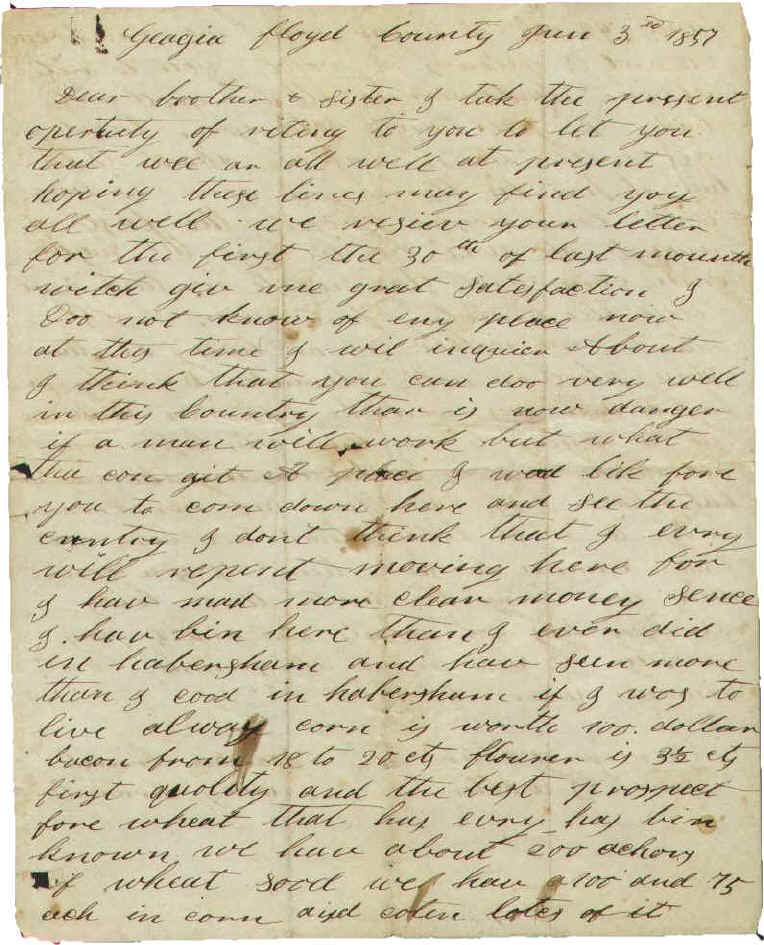 Geogia floyd County Jun 3rd 1857
Dear brother & sister I tak the pressent
opertuty of riting to you to let you
that wee ar all well at present
hoping these lines may find you
all well we resiev your letter
for the first the 30th of last mounth
witch giv me grat satesfaction I
Doo not know of eny place now
at this time I wil inquier About
I think that you can doo very well
in this Country thar is now danger
if a man will work but what
the con git A place I wod lik fore
you to com down here and see the
cuntry I don't think that I evry
will repent moving here for
I hav mad more clear money sence
I hav bin here than I ever did
in habersham and hav seen more
than I cood in habersham if I was to
live alway corn is worth 100. dollar
bacon from 18 to 20 cts flourer is 3½ cts
first quolity and the best prospect
fore wheat that has evry has bin
known we hav about 200 achors
of wheat sood we hav a 100 and 75
ach in corn and coten lotes of it